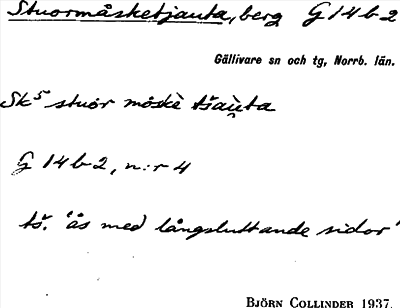 Stuormåsketjauta, berg G 14 b 2
Gällivare sn och tg, Norrb. län.
Sk⁵ stuor måskè tšaụ̀ta
G 14 b 2, n:r 4
tš. 'ås med långsluttande sidor'
BJÖRN COLLINDER 1937.